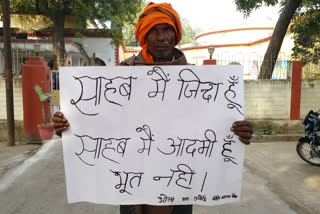 साहब मैं जिंदा हूँ
साहब मैं आदमी हूँ
भूत नहीं।
भोला